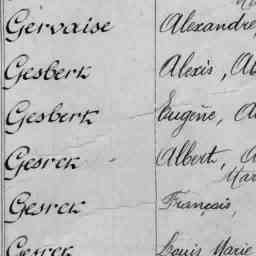 Gervaise Alexandre,
Gesberk Alexis, Al
Gesberk Eugène, A
Gesrek Albert,
Mar
Gesrek François,
Gesrek Louis Marie